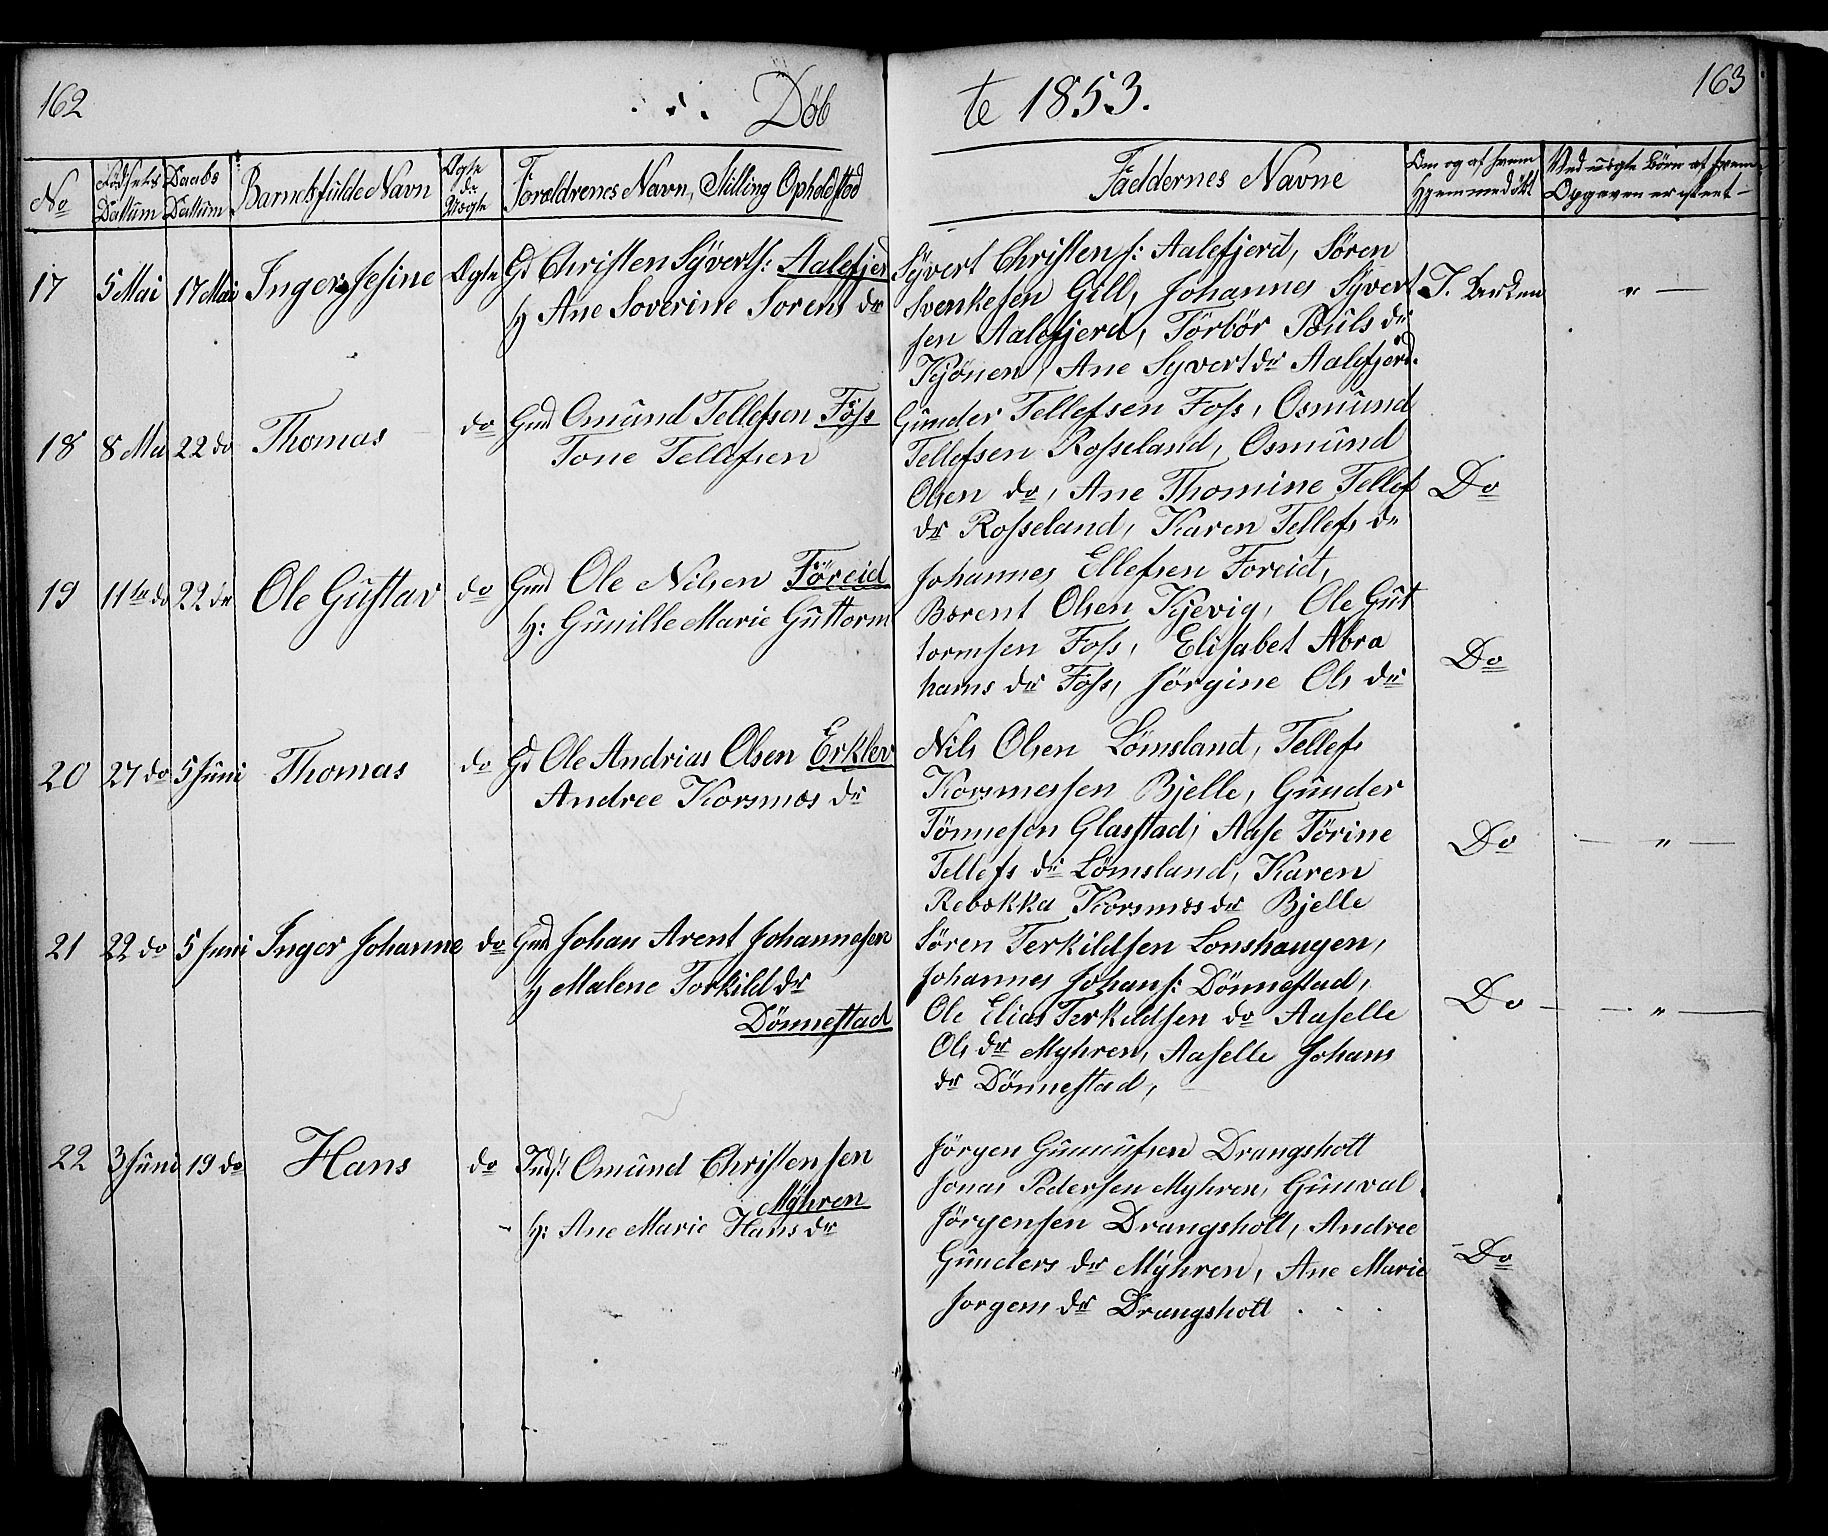 162
Döb
te 1853.
163
No
Födsels Dattum
Daabs Dattum
Barnets fulde Navn
Ægte eller Uægte
Foraldrenes Navn, Stilling Opholdstad
Faddernes Navne
Om og af hvem Hjemmedöbt
Ved uægte Börn af hvem Opgaven er skeet
17 5 Mai 17 Mai Inger Jesine Ægte Gd Christen Syverts: Aalefjer
H Ane Soverine Sorens dr
Syvert Christens: Aalefjerd, Sören
Svenkesen Gill, Johannes Syvert
sen Aalefjerd, Törbör Pouls dr
Kjönen, Ane Syvert dr Aalefjerd.
I. Kirken " —
18 8 Mai 22 do Thomas do Gmd Omund Tellefsen Foss
Tone Tellefsen
Gunder Tellefsen Foss, Osmund
Tellefsen Rosseland, Osmund
Olsen do, Ane Thomine Tellef
dr Rosseland, Karen Tellefs dr
Do
19 11te do 22 do Ole Gustav do Gmd Ole Nilsen Föreid
H: Gunille Marie Guttorm
Johannes Ellefsen Foreid,
Børent Olsen Kjevig, Ole Gut
tormsen Foss, Elisabet Abra
hams dr Foss, Jörgine Ols dr
Do
20 27 do 5 Juni Thomas do Gd Ole Andrias Olsen Erklev
Andree Korsmæs dr
Nils Olsen Lömsland, Tellefs
Korsmessen Bjelle, Gunder
Tönnesen Glasstad, Aase Törine
Tellefs dr Lömsland, Karen
Rebækka Korsmæs dr Bjelle
Do — " —
21 22 do 5 Juni Inger Johanne do Gmd Johan Arent Johannesen
H Malene Torkild dr
Dönnestad
Sören Terkildsen Lonshaugen,
Johannes Johans: Dönnestad,
Ole Elias Terkildsen do Aaselle
Ols dr Myhren, Aaselle Johans
dr Dönnestad,
Do — " —
22 3 Juni 19 do Hans do Indst Omund Christensen
Myhren
H: Ane Marie Hans dr
Jörgen Gunnufsen Drangsholt
Jonas Pedersen Myhren, Gunval
Jörgensen Drangsholt, Andree
Gunders dr Myhren, Ane Marie
Jorgens dr Drangsholt
Do